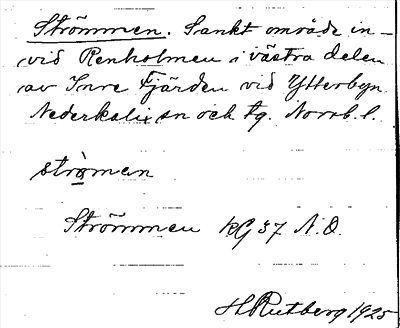 Strömmen. Sankt område in-
vid Renholmen i västra delen
av Inre Fjärden vid Ytterbyn
Nederkalix sn och tg. Norrb. l.
stròmen
Strömmen KG 37 N.O.
H Rutberg 1925